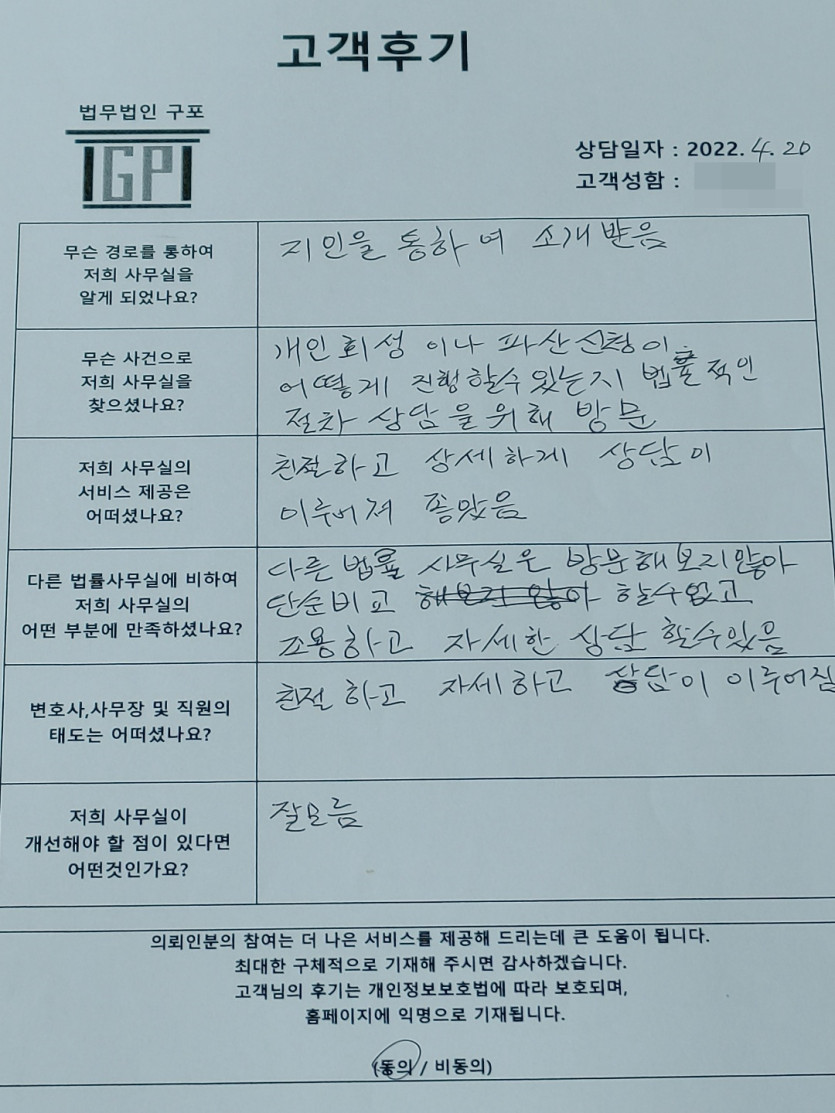 고객후기
법무법인 구포
IGPI
상담일자 : 2022. 4. 20
고객성함 :
무슨 경로를 통하여
저희 사무실을
알게 되었나요?
지인을 통하여 소개받음
무슨 사건으로
저희 사무실을
찾으셨나요?
개인회생 이나 파산신청이
어떻게 진행할수있는지 법률적인
절차 상담을위해 방문
저희 사무실의
서비스 제공은
어떠셨나요?
친절하고 상세하게 상담이
이루어져 좋았음
다른 법률사무실에 비하여
저희 사무실의
어떤 부분에 만족하셨나요?
다른 법률 사무실은 방문해보지않아
단순비교 해보지 않아 할수없고
조용하고 자세한 상담 할수있음
변호사,사무장 및 직원의
태도는 어떠셨나요?
친절 하고 자세하고 상담이 이루어짐
저희 사무실이
개선해야 할 점이 있다면
어떤것인가요?
잘모름
의뢰인분의 참여는 더 나은 서비스를 제공해 드리는데 큰 도움이 됩니다.
최대한 구체적으로 기재해 주시면 감사하겠습니다.
고객님의 후기는 개인정보보호법에 따라 보호되며,
홈페이지에 익명으로 기재됩니다.
(동의 / 비동의)